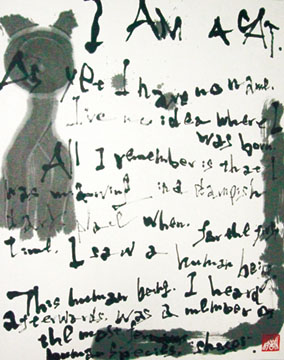 I AM A CAT.
As yet I have no name.
I've no idea where I
was born.
All I remember is that I
was miaowing in a dampish
dark place when, for the first
time, I saw a human being.
This human being, I heard
afterwards, was a member of
the most
human species